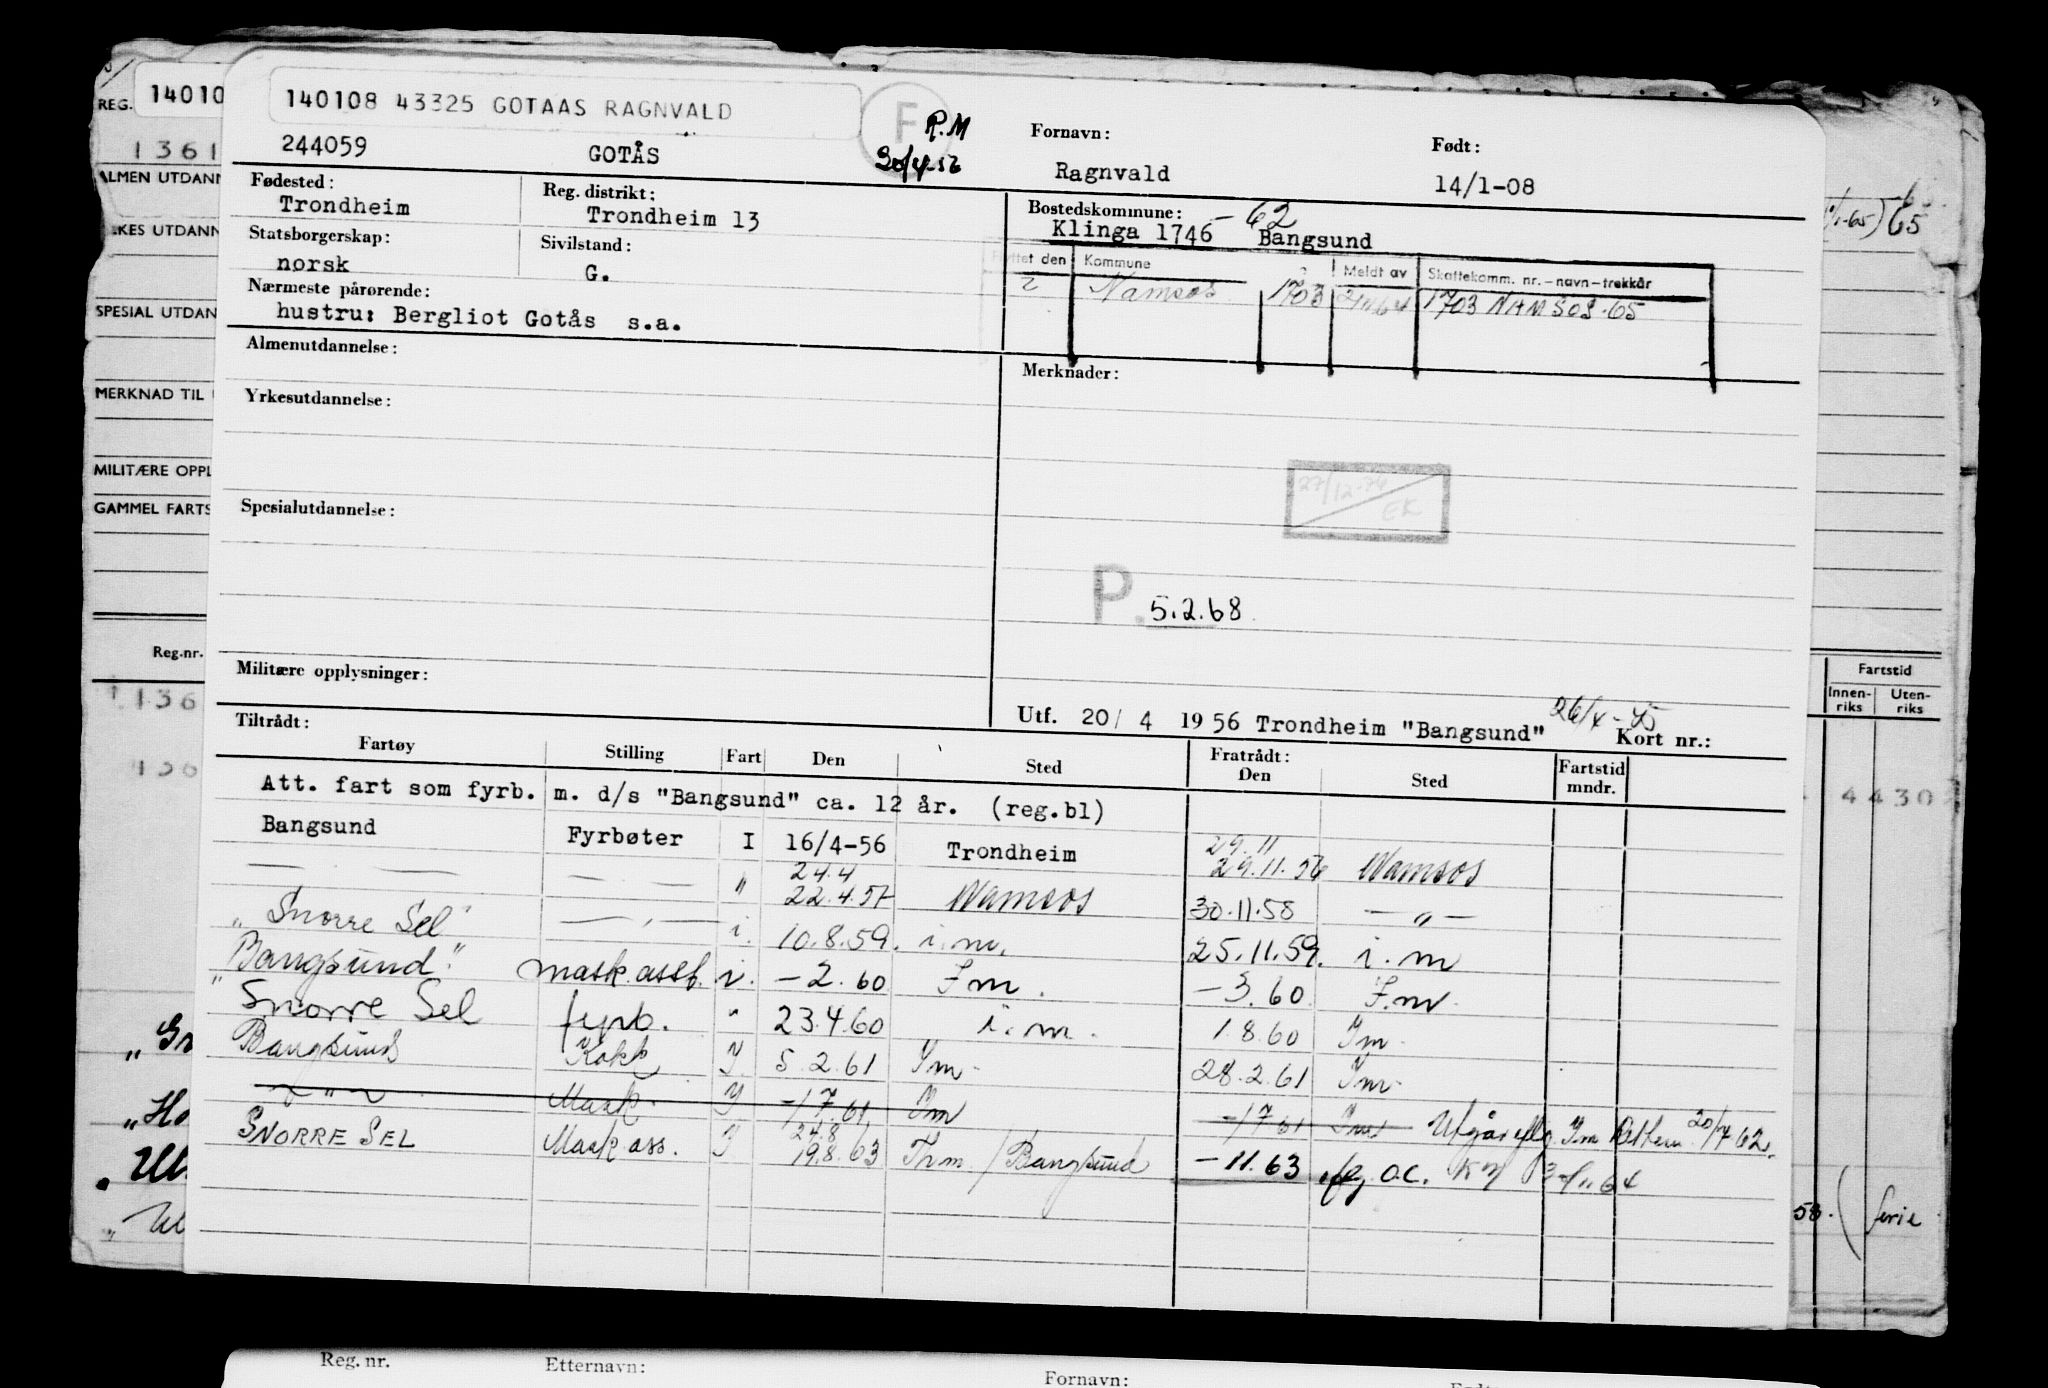 140108 43325 GOTAAS RAGNVALD
F
R.M
244059 GOTÅS 30/4-56
Fornavn: Ragnvald
Født: 14/1-08
Fødested: Trondheim
Reg. distrikt: Trondheim 13
Bostedskommune: Klinga 1746 - 62 Bangsund
Statsborgerskap: norsk
Sivilstand: G.
Flyttet den Kommune Meldt av Skattekomm. nr.-navn-trekkår
Namsos 1703 1703 NAMSOS-65
Nærmeste pårørende:
hustru: Bergliot Gotås s.a.
Almenutdannelse:
Merknader:
Yrkesutdannelse:
27/12-74 EK
Spesialutdannelse:
P. 5.2.68
Militære opplysninger:
Utf. 20/ 4 1956 Trondheim "Bangsund" 26/4-45
Kort nr.:
Tiltrådt:
Fartøy Stilling Fart Den Sted Fratrådt: Den Sted Fartstid mndr.
Att. fart som fyrb. m. d/s "Bangsund" ca. 12 år. (reg.bl)
Bangsund Fyrbøter I 16/4-56 Trondheim 29.11 29.11.56 Namsos
— — — — " 24.4 22.4.57 Namsos 30.11.58 — " —
"Snorre Sel" — " — i. 10.8.59. i.m. 25.11.59. i.m
Bangsund." mask.ass. i. -2.60 I.m. -3.60 I.m.
"Snorre Sel fyrb. " 23.4.60 i.m. 1.8.60 Im.
Bangsund Kokk I. 5.2.61 Im. 28.2.61 Im.
— " — Mask. I -17 61 Im -17 61 Im Utgår iflg. Im 20/4 62.
SNORRE SEL Mask ass. I 24.8 19.8.63 Trm / Bangsund -11.63 iflg. O.C.
REG. 140108
1361
ALMEN UTDANN
YRKES UTDANN
SPESIAL UTDAN
MERKNAD TIL
MILITÆRE OPPL
GAMMEL FARTS
Reg.nr.
136
136
"Sn
"Ha
1/1-65) 65
Fartstid
Innen-riks Uten-riks
4430
58. (ferie
Reg. nr. Etternavn: Fornavn: